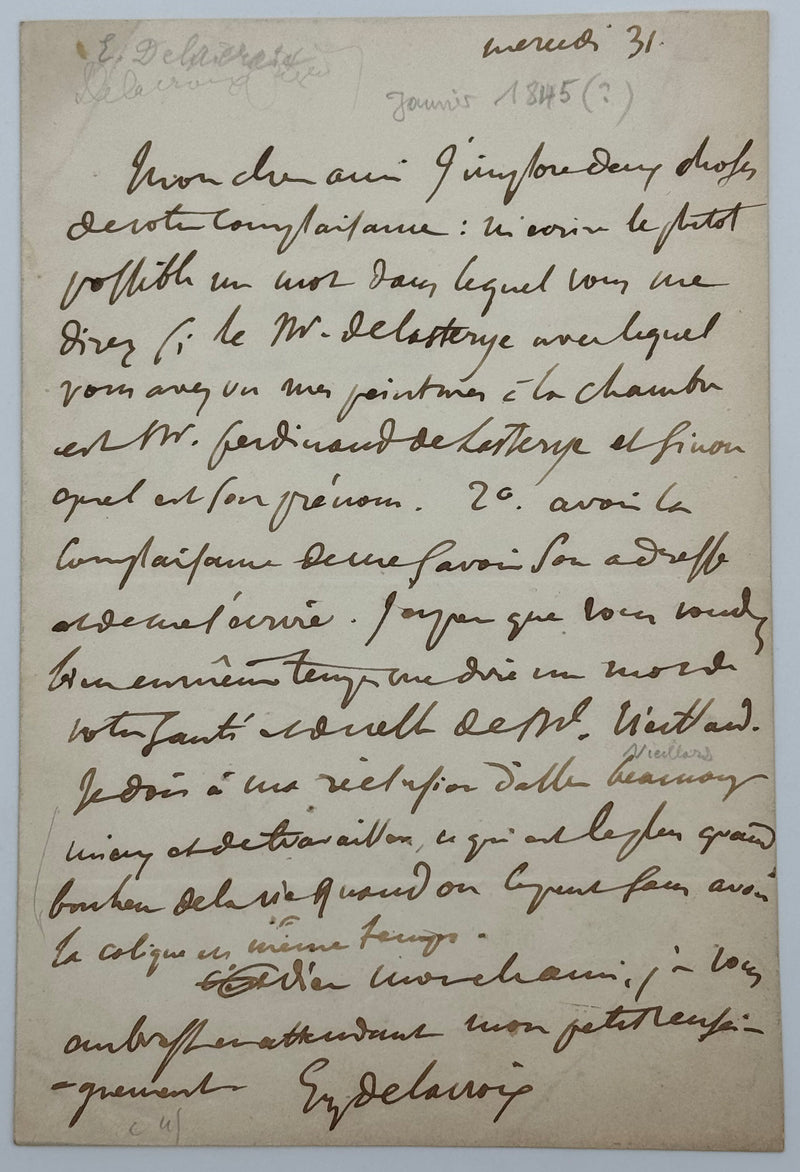 E. Delacroix
Delacroix
mercredi 31.
Janvier 1845 (?)
Mon cher ami J'implore deux choses
de votre complaisance : m'ecrire le plutot
possible un mot dans lequel vous me
direz si le Mr. de Lasterye avec lequel
vous avez vu mes peintures à la chambre
est Mr. ferdinand de Lasterye et sinon
quel est son prénom. 2o. avoir la
complaisance de me savoir son adresse
et de me l'écrire. J'espere que vous voudrez
bien en même temps me dire un mot de
votre santé et de celle de Mr. Vieillard.
Vieillard
Je dois à ma réclusion d'aller beaucoup
mieux et de travailler, ce qui est le plus grand
bonheur de la vie quand on le peut sans avoir
la colique en même temps.
adieu mon cher ami, je vous
embrasse en attendant mon petit rensei-
-gnement Eug Delacroix